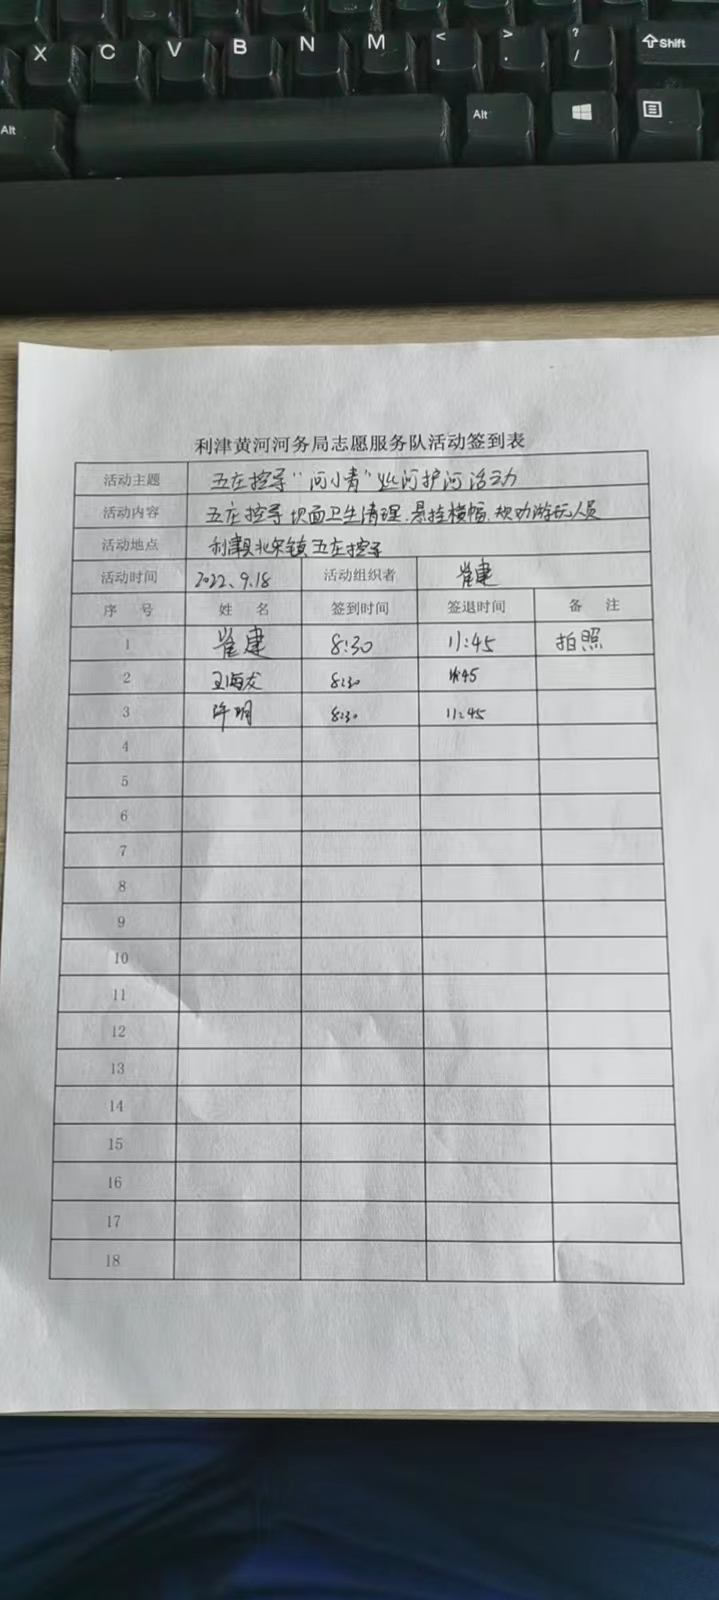 X C V B N M < , > . ? / Shift
Alt Alt
利津黄河河务局志愿服务队活动签到表
活动主题 五庄控导“河小青”巡河护河活动
活动内容 五庄控导坝面卫生清理、悬挂横幅、规劝游玩人员
活动地点 利津县北宋镇五庄控导
活动时间 2022、9.18 活动组织者 崔建
序 号 姓 名 签到时间 签退时间 备 注
1 崔建 8:30 11:45 拍照
2 王海龙 8:30 11:45
3 许明 8:30 11:45
4
5
6
7
8
9
10
11
12
13
14
15
16
17
18